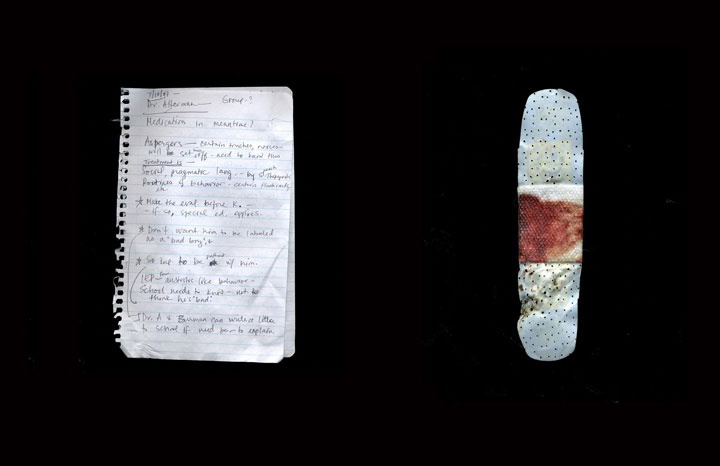 7/18/97 —
Dr. Alterman — Group - ?
Medication in meantime?
Aspergers — certain touches, noises -
will be set him off - need to hard this
Treatment is -
Social, pragmatic lang. - by speech therapist
Routines of behavior - certain
etc.
* Make the eval before K. -
- if so, special ed. applies.
* Don't want him to be labeled
as a "bad boy",
* Set up to be patient w/ him.
IEP - for autistic like behavior -
School needs to know - not to
think he's "bad"
Dr. A & Bauman can write a letter
to school if need be - to explain